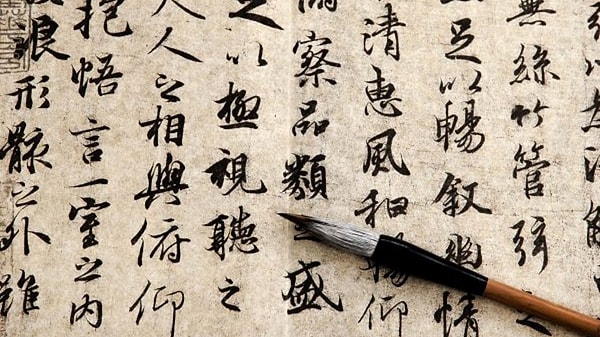 以為流
無絲竹管弦之
足以暢敘幽情
清惠風和暢仰
察品類之盛
足以極視聽之
夫人之相與俯仰
抱悟言一室之內
浪形骸之外雖